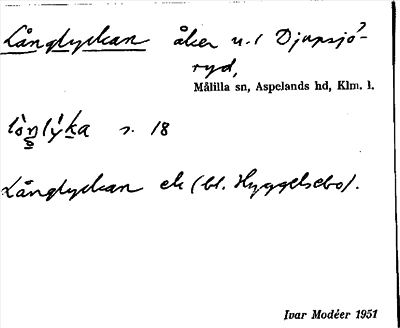 Långlyckan åker u. / Djupsjö-
ryd,
Målilla sn, Aspelands hd, Klm. l.
s. 18
Långlyckan ek (bl. Hyggelsebo).
Ivar Modéer 1951